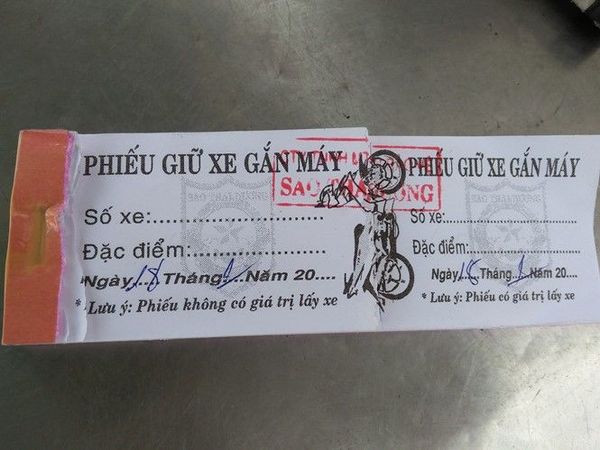 PHIẾU GIỮ XE GẮN MÁY
Số xe:............................
Đặc điểm:.......................
Ngày 18 Tháng 1 Năm 20....
* Lưu ý: Phiếu không có giá trị lấy xe
SAO
PHIẾU GIỮ XE GẮN MÁY
Số xe:............................
Đặc điểm:.......................
Ngày 18 Tháng 1 Năm 20....
* Lưu ý: Phiếu có giá trị lấy xe